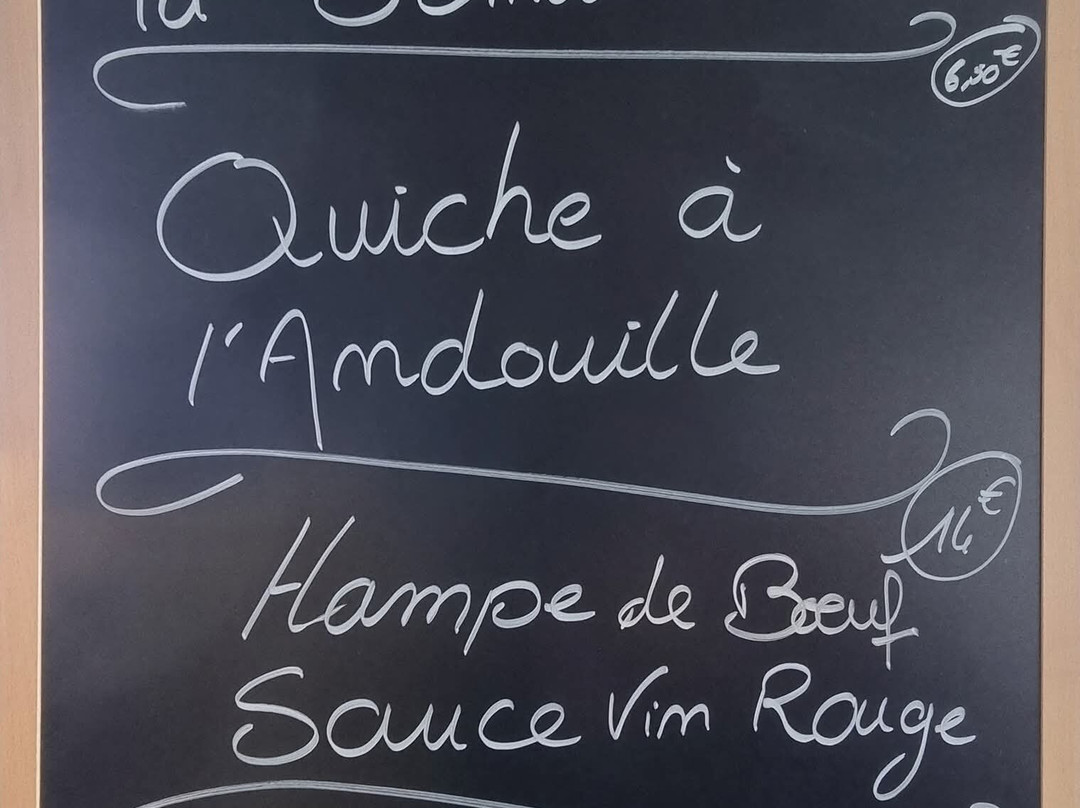 la
6,50€
Quiche à
l'Andouille
14€
Hampe de Bœuf
Sauce Vin Rouge